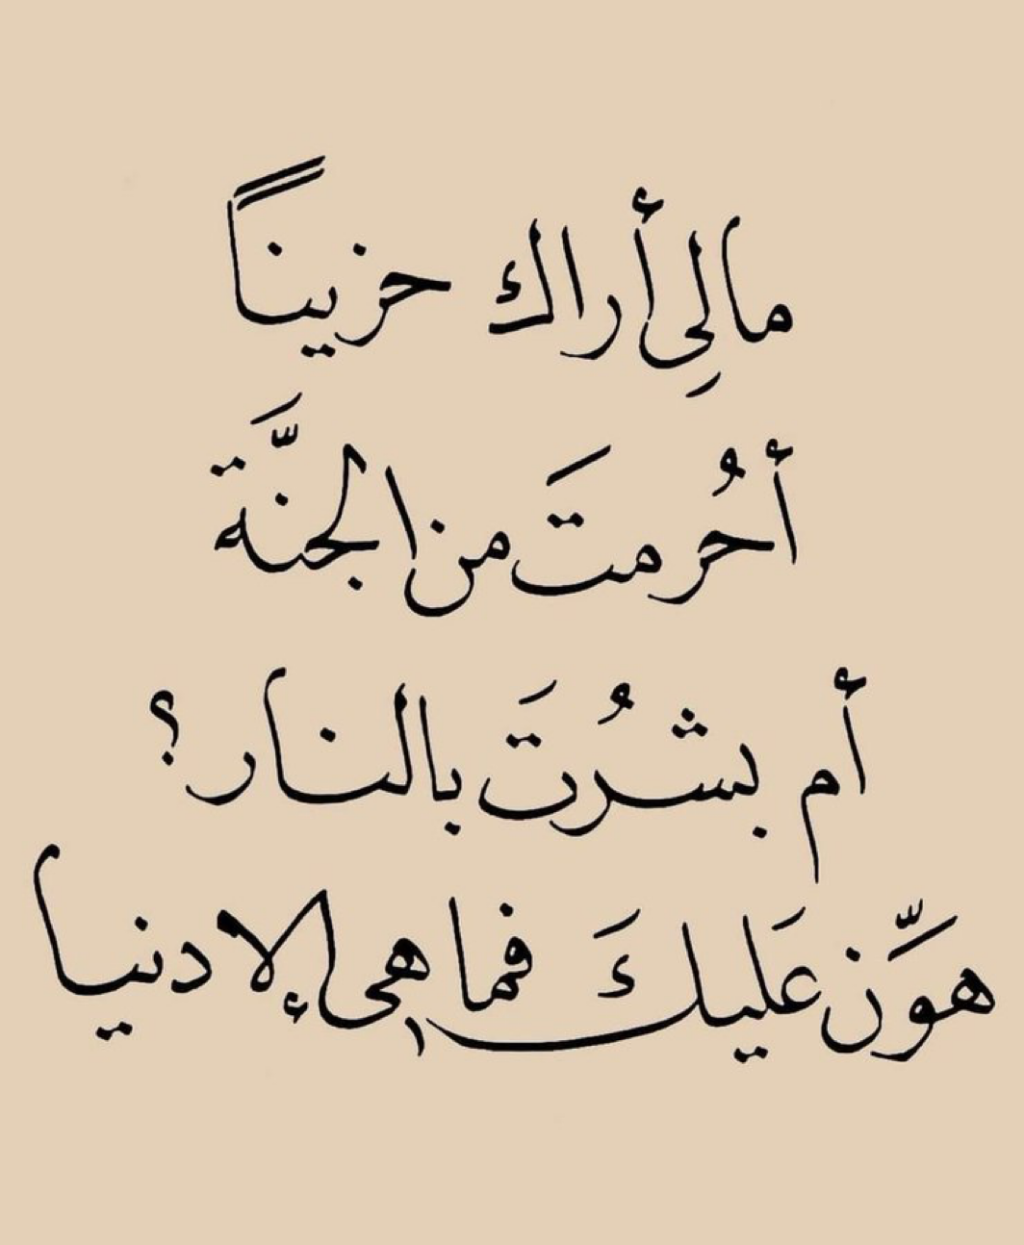 مالِي أراك حزيناً
أحُرمتَ من الجنَّة
أم بشرُتَ بالنار؟
هوَّن عَليكَ فما هِي إلا دنيا